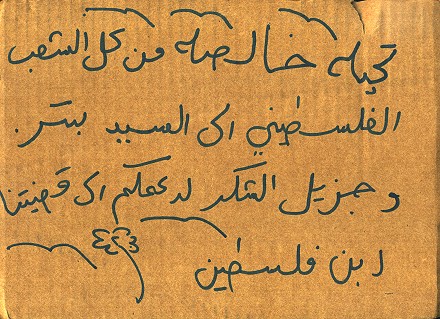 تحيله خالصله من كل الشعب
الفلسطيني الى السيد بيتر.
وجزيل الشكر لدعمكم الى قضيتنا
ابن فلسطين